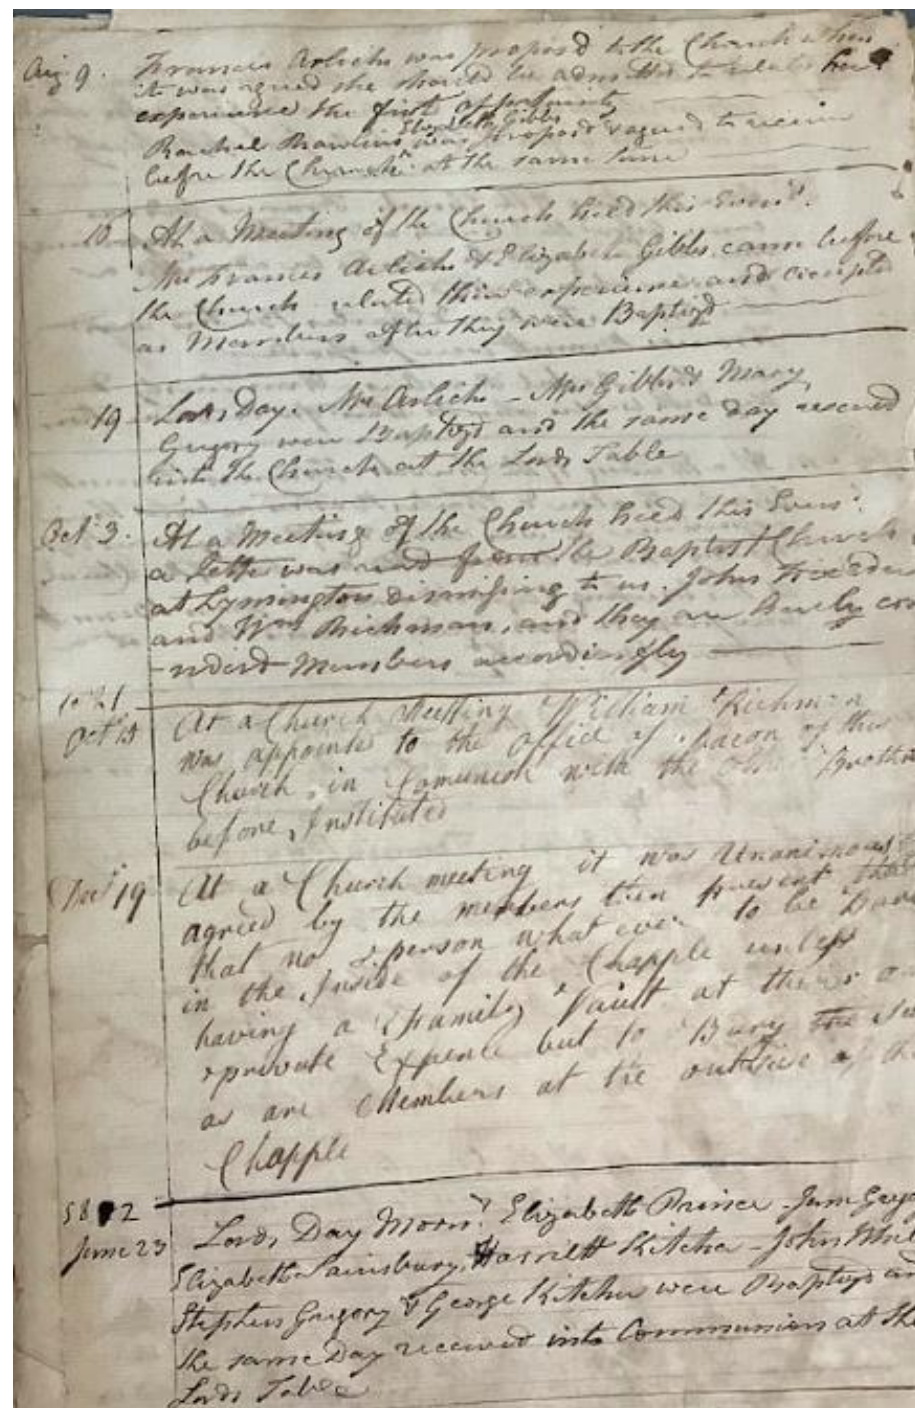 Aug 9. Frances Arlich was propos'd to the Church when
it was agreed she should be admitted to relate her
experience the first oppertunity
Elizabeth Gibbs
Rachel Rawlins was propos'd & agreed to receive
before the Church at the same time
16 At a Meeting of the Church held this Even'g.
Mrs Frances Arlich & Elizabeth Gibbs came before
the Church related their experience and
as Members after they were Baptiz'd
19 Lords Day. Mrs Arlich - Mrs Gibbs & Mary
Gregory were Baptiz'd and the same day received
into the Church at the Lords Table
Oct 3. At a Meeting of the Church held this Even'g.
a Letter was read from the Baptist Church
at Lymington dismissing to us. John
and Wm Richman, and they are hereby con
-siderd Members accordingly
Oct 15 At a Church Meeting William Richman
was appointed to the Office of Deacon of this
Church, in Comunion with the Brothe
before Instituted
19 At a Church meeting it was Unanimous
agreed by the members then present that
that no person what ever to be
in the Inside of the Chapple unless
having a Family Vault at their o
private Expence but to Bury the su
as are Members at the outside of the
Chapple
June 23 Lords Day Morn'g Elizabeth Prince - Jane Grego
Elizabeth Sainsbury, Harriett Kitcher - John
Stephen Gregory & George Kitcher were Baptiz'd an
the same Day received into Communion at the
Lords Table